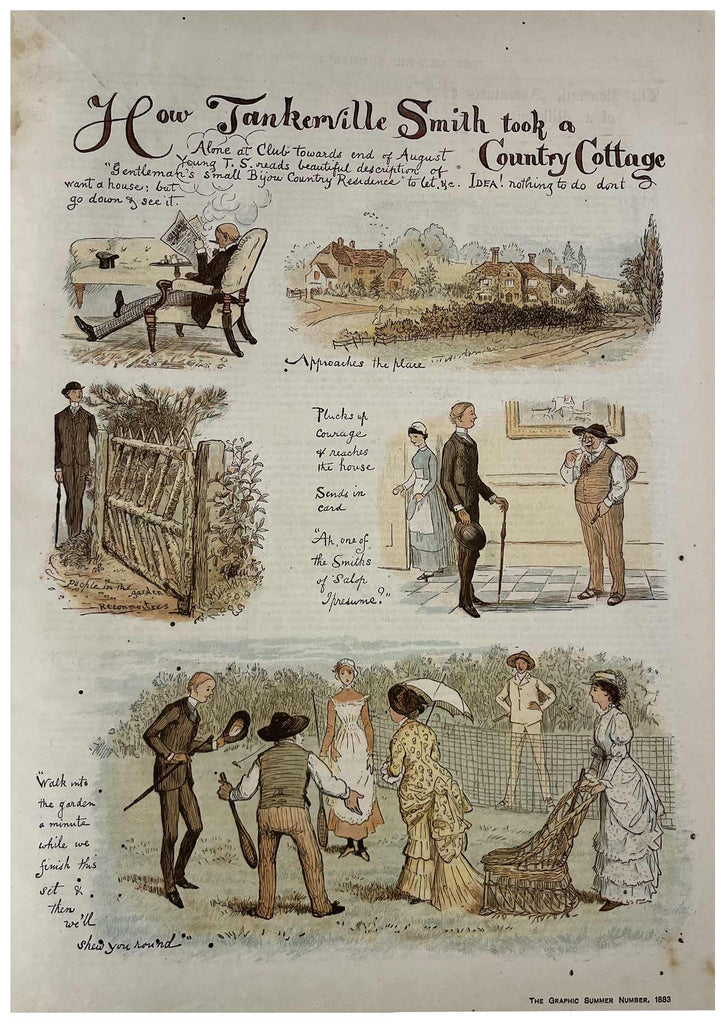 How Tankerville Smith took a
Country Cottage
Alone at Club towards end of August
young T. S. reads beautiful description of
"Gentleman's small Bijou Country Residence" to let, &c. IDEA! nothing to do dont
want a house; but
go down & see it.
Approaches the place
People in the garden
Reconnoitres
Plucks up
courage
& reaches
the house
Sends in
card
"Ah, one of
the Smiths
of Salop
I presume?"
"Walk into
the garden
a minute
while we
finish this
set &
then
we'll
shew you round"
THE GRAPHIC SUMMER NUMBER, 1883